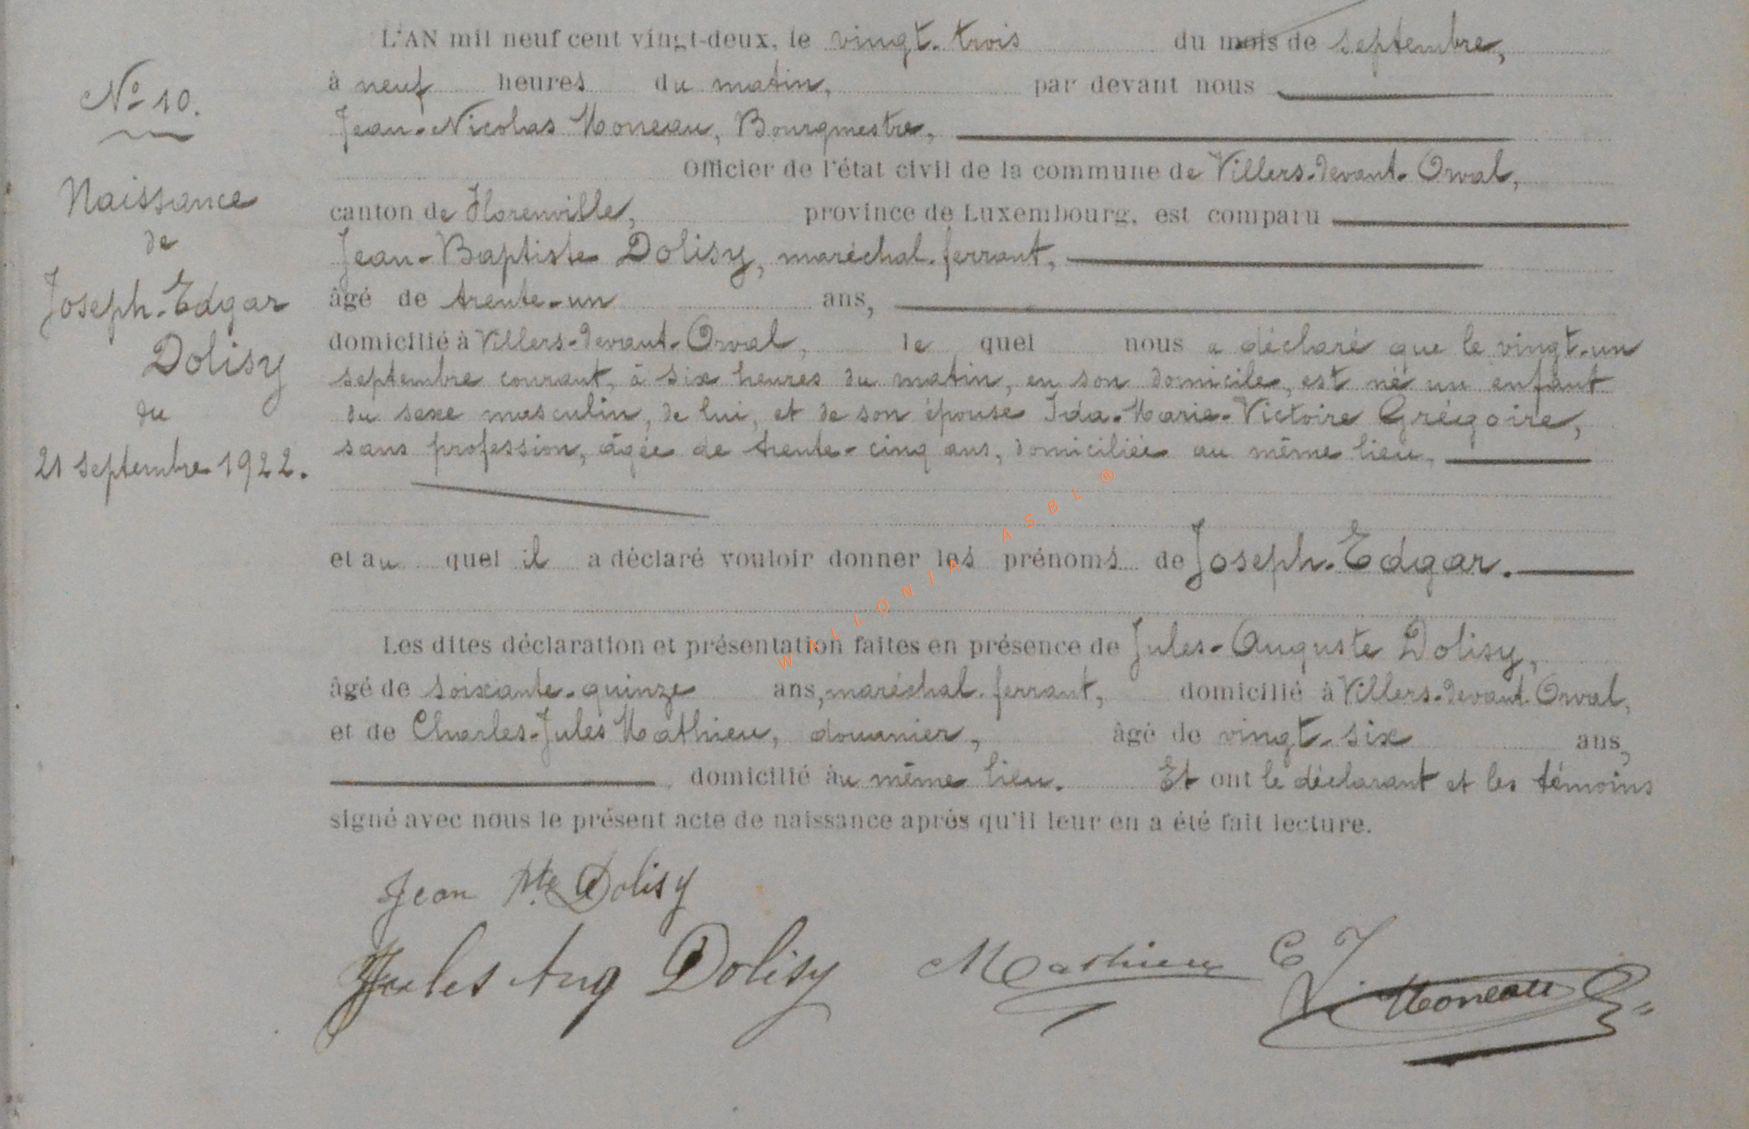 L'AN mil neuf cent vingt-deux, le vingt-trois du mois de septembre,
à neuf heures du matin, par devant nous
Jean-Nicolas Moneau, Bourgmestre,
Officier de l'état civil de la commune de Villers-devant-Orval,
canton de Florenville, province de Luxembourg, est comparu
Jean-Baptiste Dolisy, maréchal-ferrant,
âgé de trente-un ans,
domicilié à Villers-devant-Orval, le quel nous a déclaré que le vingt-un
septembre courant, à six heures du matin, en son domicile, est né un enfant
du sexe masculin, de lui, et de son épouse Ida-Marie-Victoire Grégoire,
sans profession, âgée de trente-cinq ans, domiciliée au même lieu,
et au quel il a déclaré vouloir donner les prénoms de Joseph-Edgar.
Les dites déclaration et présentation faites en présence de Jules-Auguste Dolisy,
âgé de soixante-quinze ans, maréchal-ferrant, domicilié à Villers-devant-Orval,
et de Charles-Jules Mathieu, douanier, âgé de vingt-six ans,
domicilié au même lieu. Et ont le déclarant et les témoins
signé avec nous le présent acte de naissance après qu'il leur en a été fait lecture.
Jean Bte Dolisy
Jules Aug Dolisy Mathieu C J
Moneau
No 10.
Naissance
de
Joseph-Edgar
Dolisy
du
21 septembre 1922.
WALLONIA ASBL ®